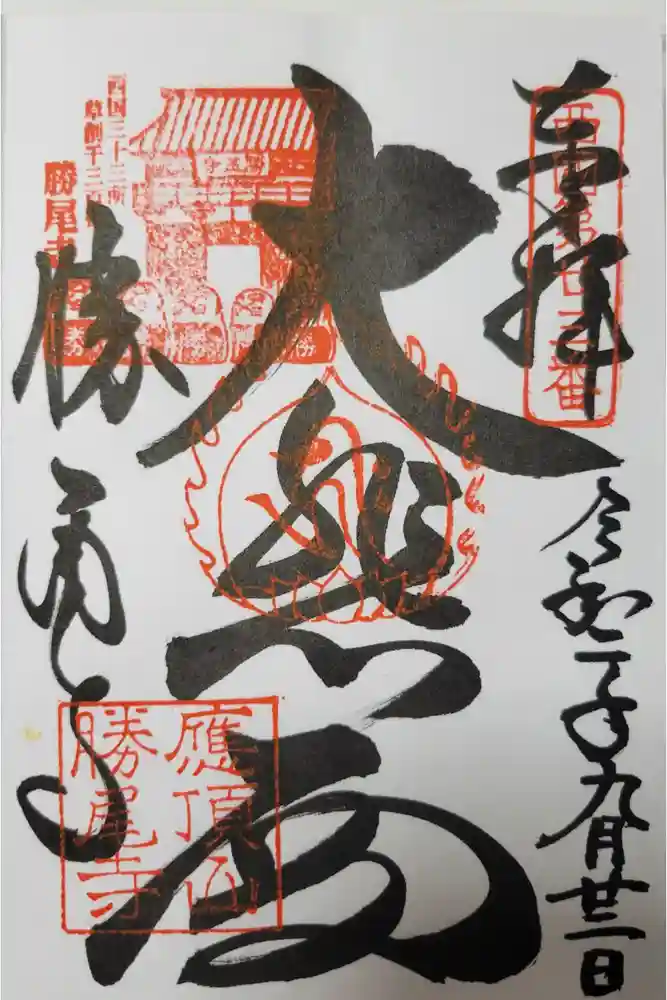 奉拝
西国第廿三番
令和二年九月廿二日
大悲殿
西国三十三所
草創千三百
勝尾寺
勝尾寺
應頂山
勝尾寺